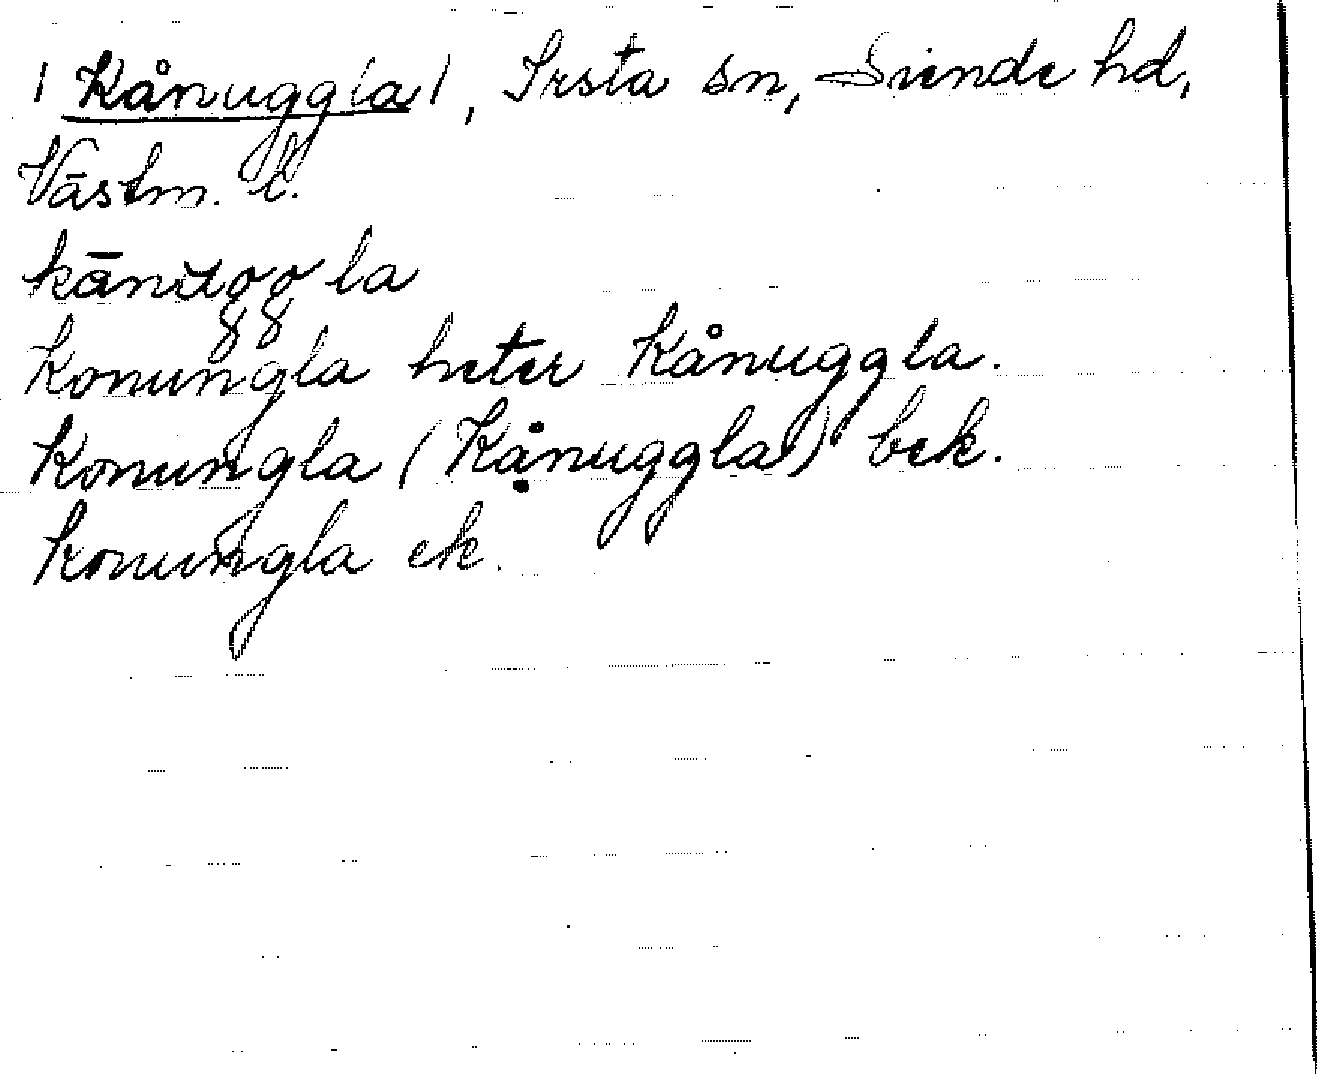 | Kånuggla |, Irsta sn, Siende hd,
Västm. l.
kānŭggla
Konungla heter Kånuggla.
Konungla (Kånuggla) bek.
Konungla ek.